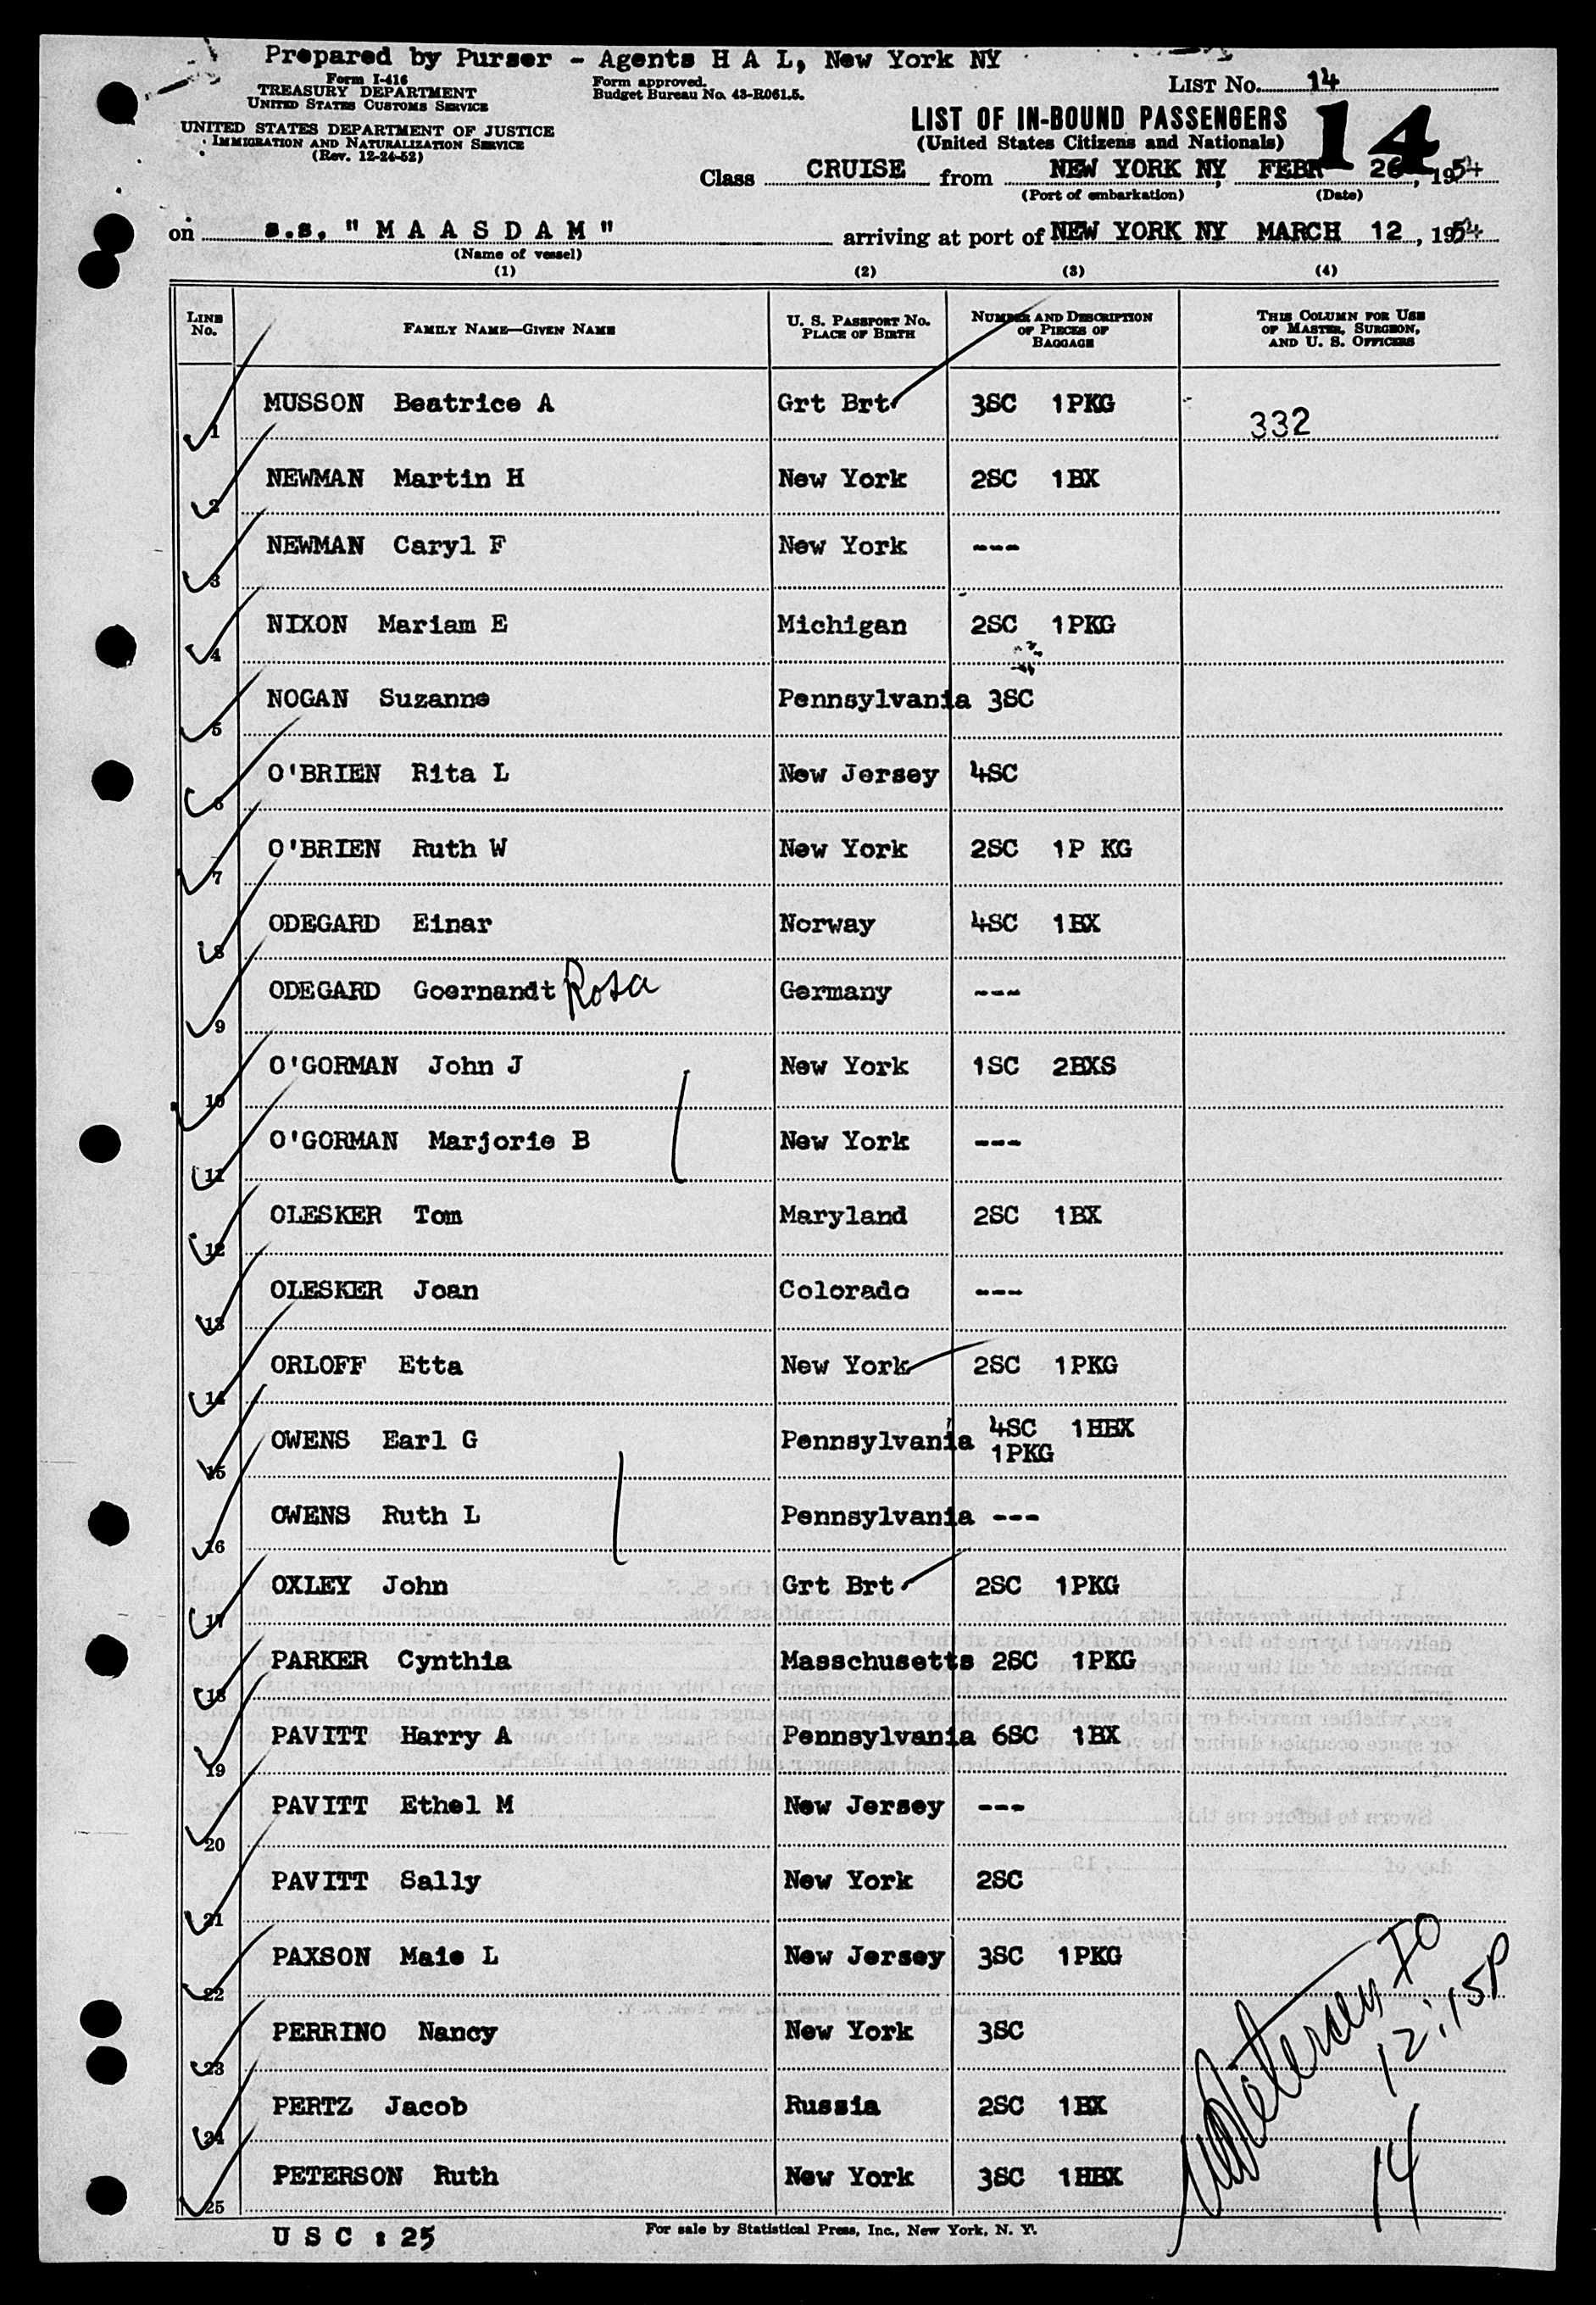 Prepared by Purser - Agents H A L, New York NY
Form I-416
TREASURY DEPARTMENT
UNITED STATES CUSTOMS SERVICE
Form approved.
Budget Bureau No. 43-R061.5.
LIST No. 14
UNITED STATES DEPARTMENT OF JUSTICE
IMMIGRATION AND NATURALIZATION SERVICE
(Rev. 12-24-52)
LIST OF IN-BOUND PASSENGERS
(United States Citizens and Nationals)
14
Class CRUISE from NEW YORK NY, FEBR 26, 1954
(Port of embarkation) (Date)
on s.s. "MAASDAM" arriving at port of NEW YORK NY MARCH 12, 1954
(Name of vessel)
(1) (2) (3) (4)
LINE No. FAMILY NAME—GIVEN NAME U. S. PASSPORT No. PLACE OF BIRTH NUMBER AND DESCRIPTION OF PIECES OF BAGGAGE THIS COLUMN FOR USE OF MASTER, SURGEON, AND U. S. OFFICERS
1 MUSSON Beatrice A Grt Brt 3SC 1PKG 332
2 NEWMAN Martin H New York 2SC 1BX
3 NEWMAN Caryl F New York ---
4 NIXON Mariam E Michigan 2SC 1PKG
5 NOGAN Suzanne Pennsylvania 3SC
6 O'BRIEN Rita L New Jersey 4SC
7 O'BRIEN Ruth W New York 2SC 1P KG
8 ODEGARD Einar Norway 4SC 1BX
9 ODEGARD Goernandt Rosa Germany ---
10 O'GORMAN John J New York 1SC 2BXS
11 O'GORMAN Marjorie B New York ---
12 OLESKER Tom Maryland 2SC 1BX
13 OLESKER Joan Colorado ---
14 ORLOFF Etta New York 2SC 1PKG
15 OWENS Earl G Pennsylvania 4SC 1HBX
1PKG
16 OWENS Ruth L Pennsylvania ---
17 OXLEY John Grt Brt 2SC 1PKG
18 PARKER Cynthia Masschusetts 2SC 1PKG
19 PAVITT Harry A Pennsylvania 6SC 1BX
20 PAVITT Ethel M New Jersey ---
21 PAVITT Sally New York 2SC
22 PAXSON Maie L New Jersey 3SC 1PKG
23 PERRINO Nancy New York 3SC
24 PERTZ Jacob Russia 2SC 1BX
25 PETERSON Ruth New York 3SC 1HBX
12:15P
14
U S C : 25
For sale by Statistical Press, Inc., New York, N. Y.